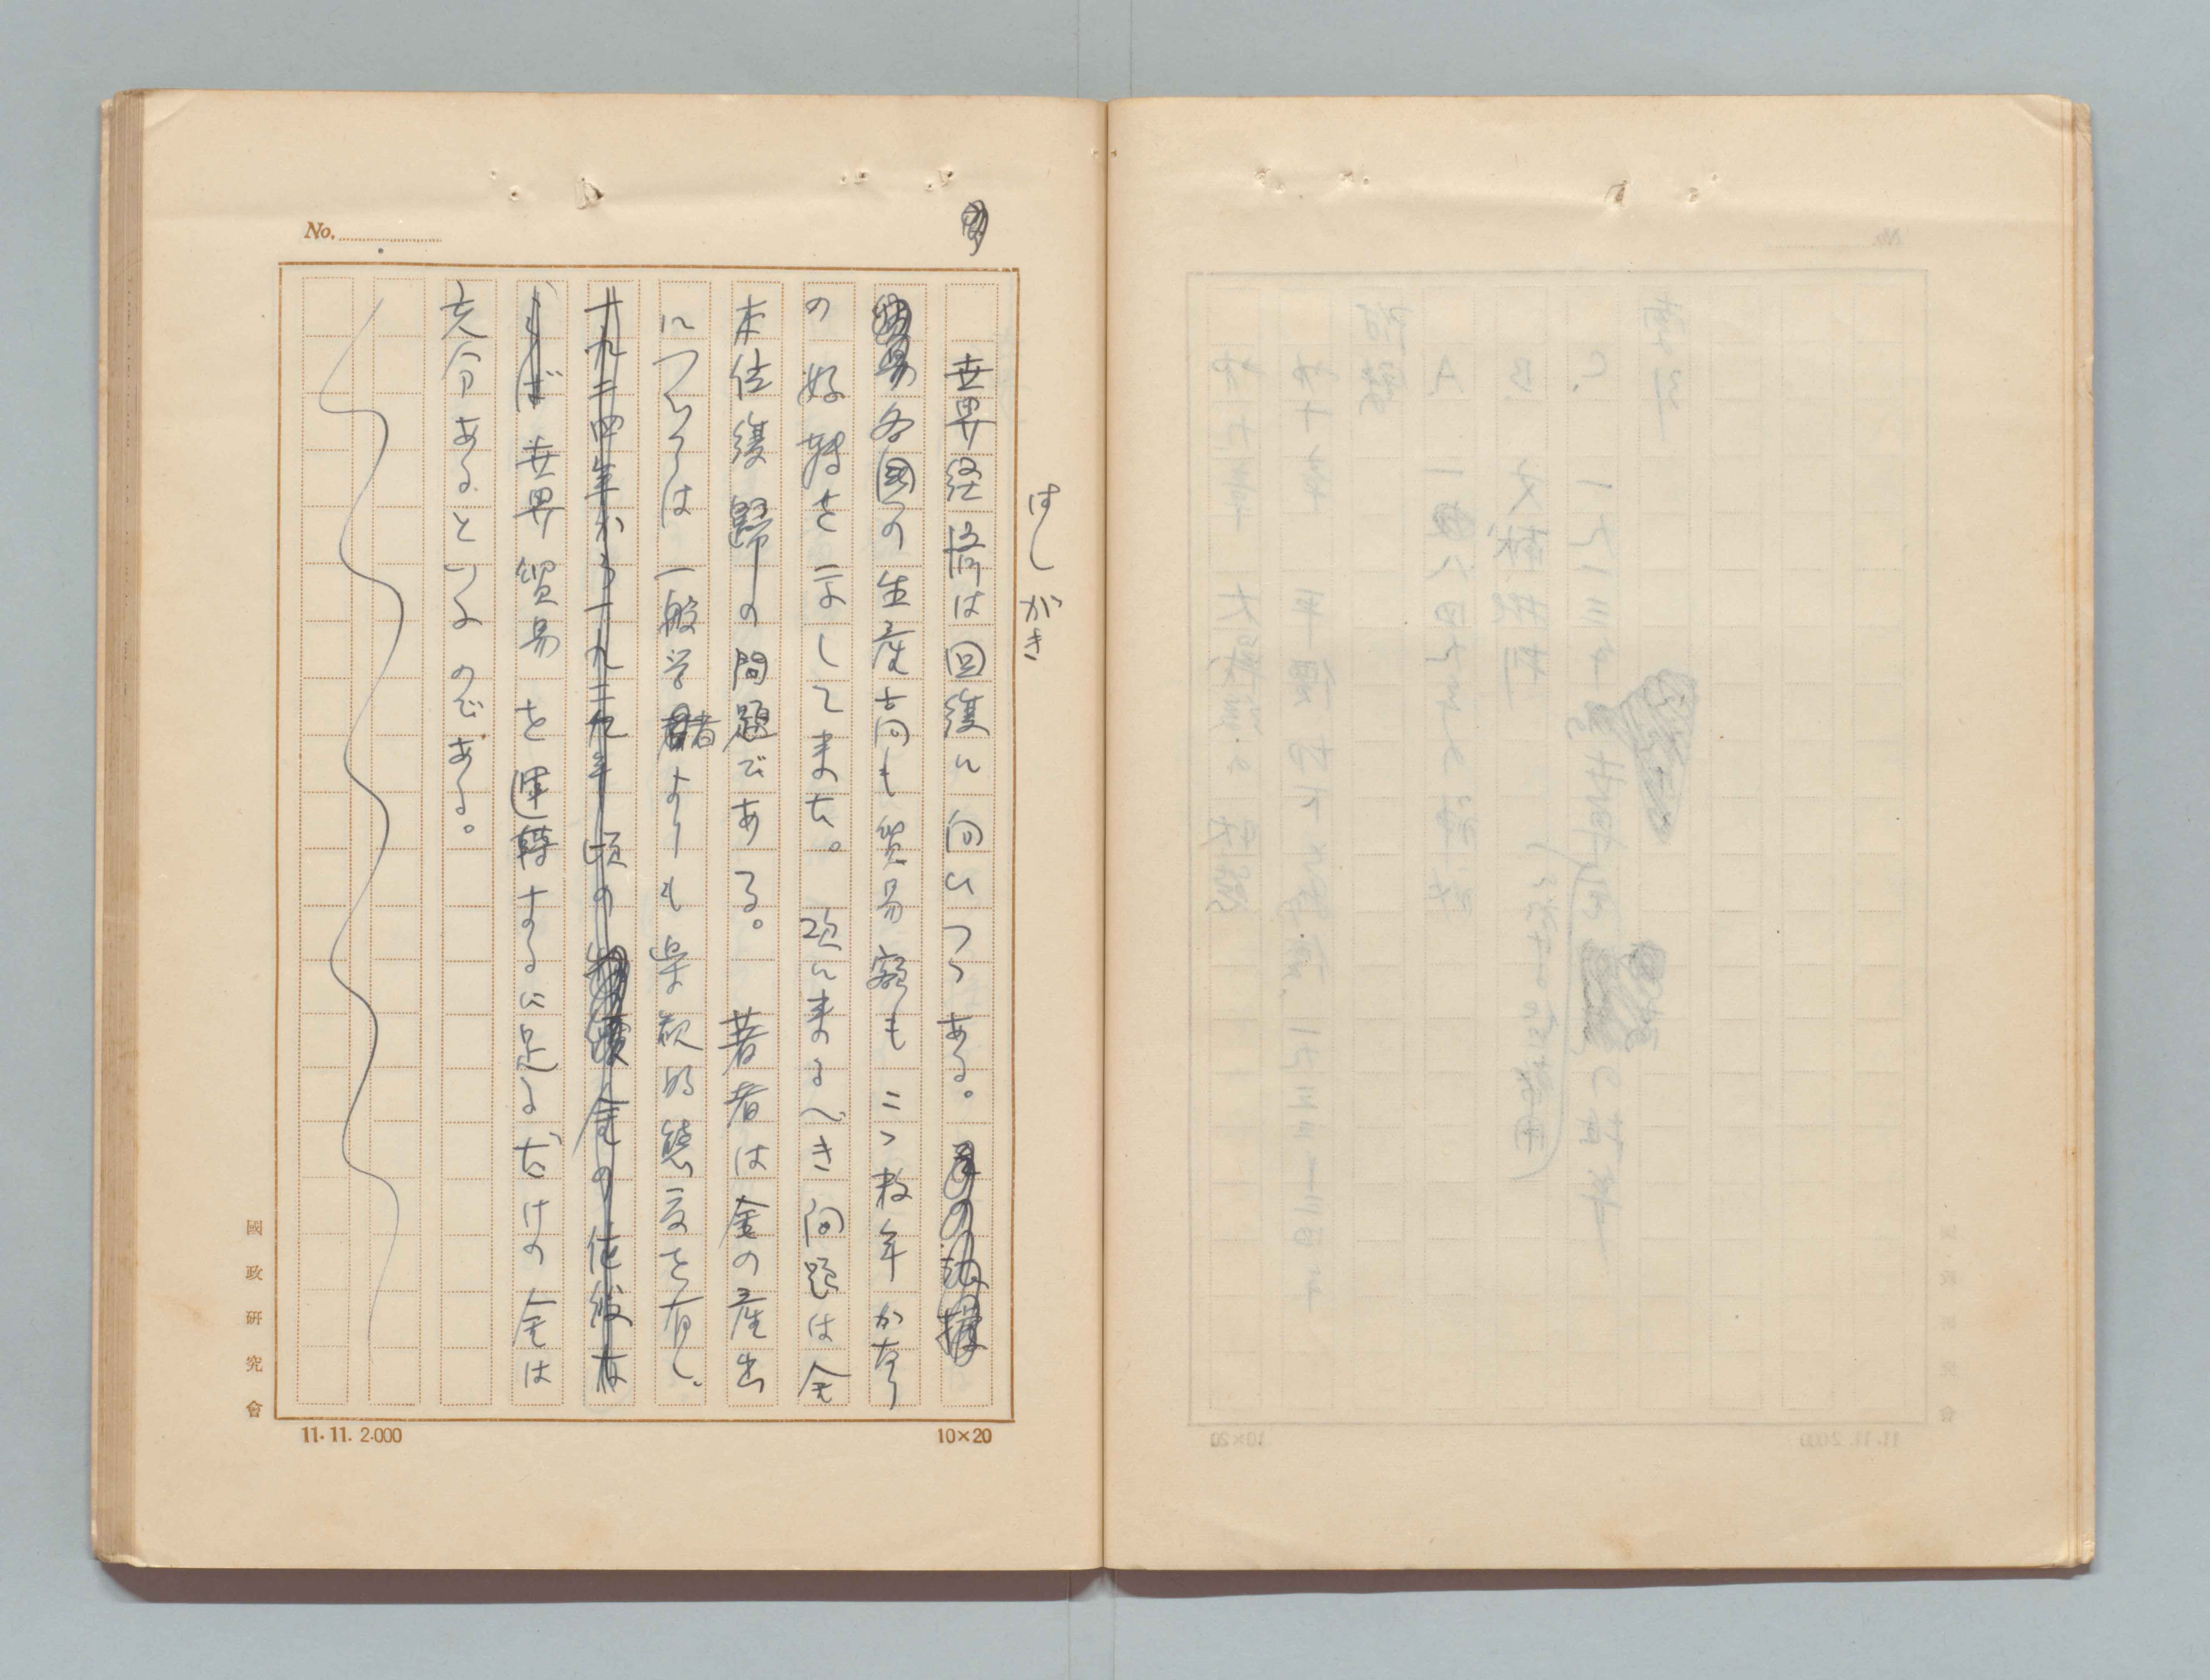 はしがき
世界経済は回復に向ひつゝある。
各國の生産高も貿易額もこゝ数年かなり
の好轉を示して来た。次に来るべき问題は金
本位復歸の問題である。著者は金の産出
については一般学者よりも楽観的態度を有し、
十九二四年から十九二九年頃の金の
ば世界貿易を運轉するに足るだけの金は
充分あるといふのである。
No.
國政研究會
11.11. 2.000
10×20